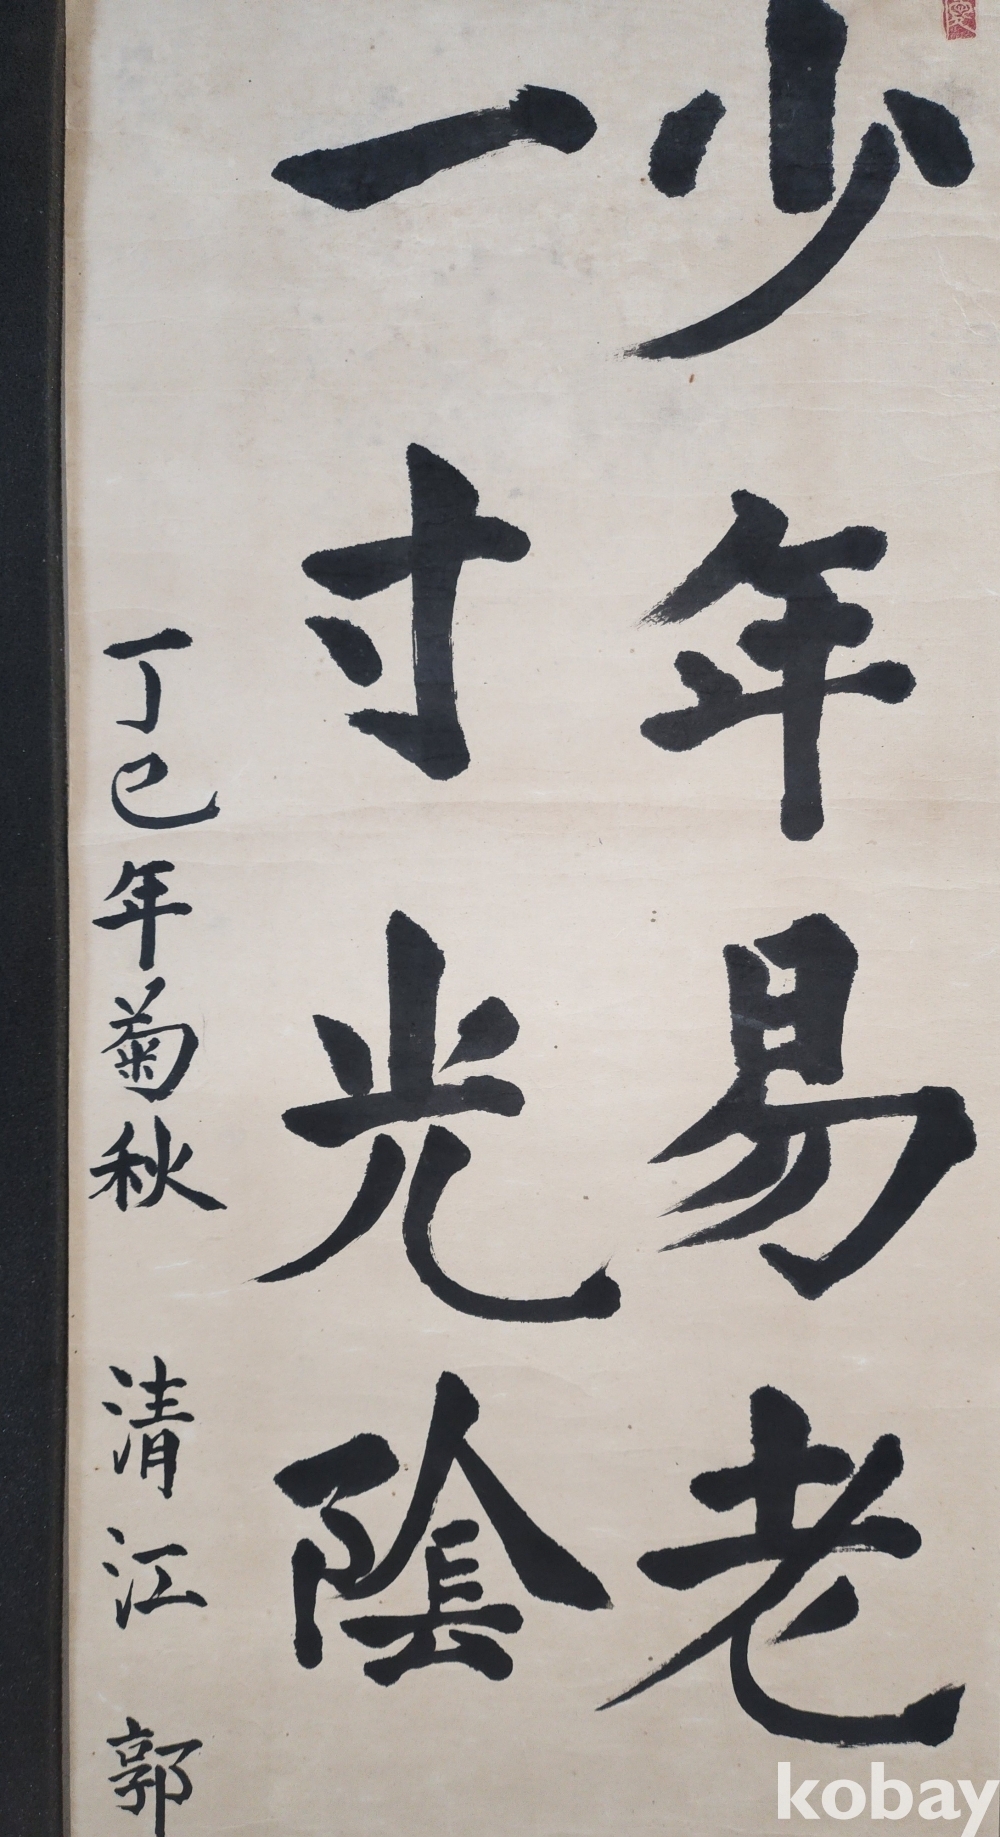 少年易老
一寸光陰
丁巳年菊秋 清江 郭
kobay